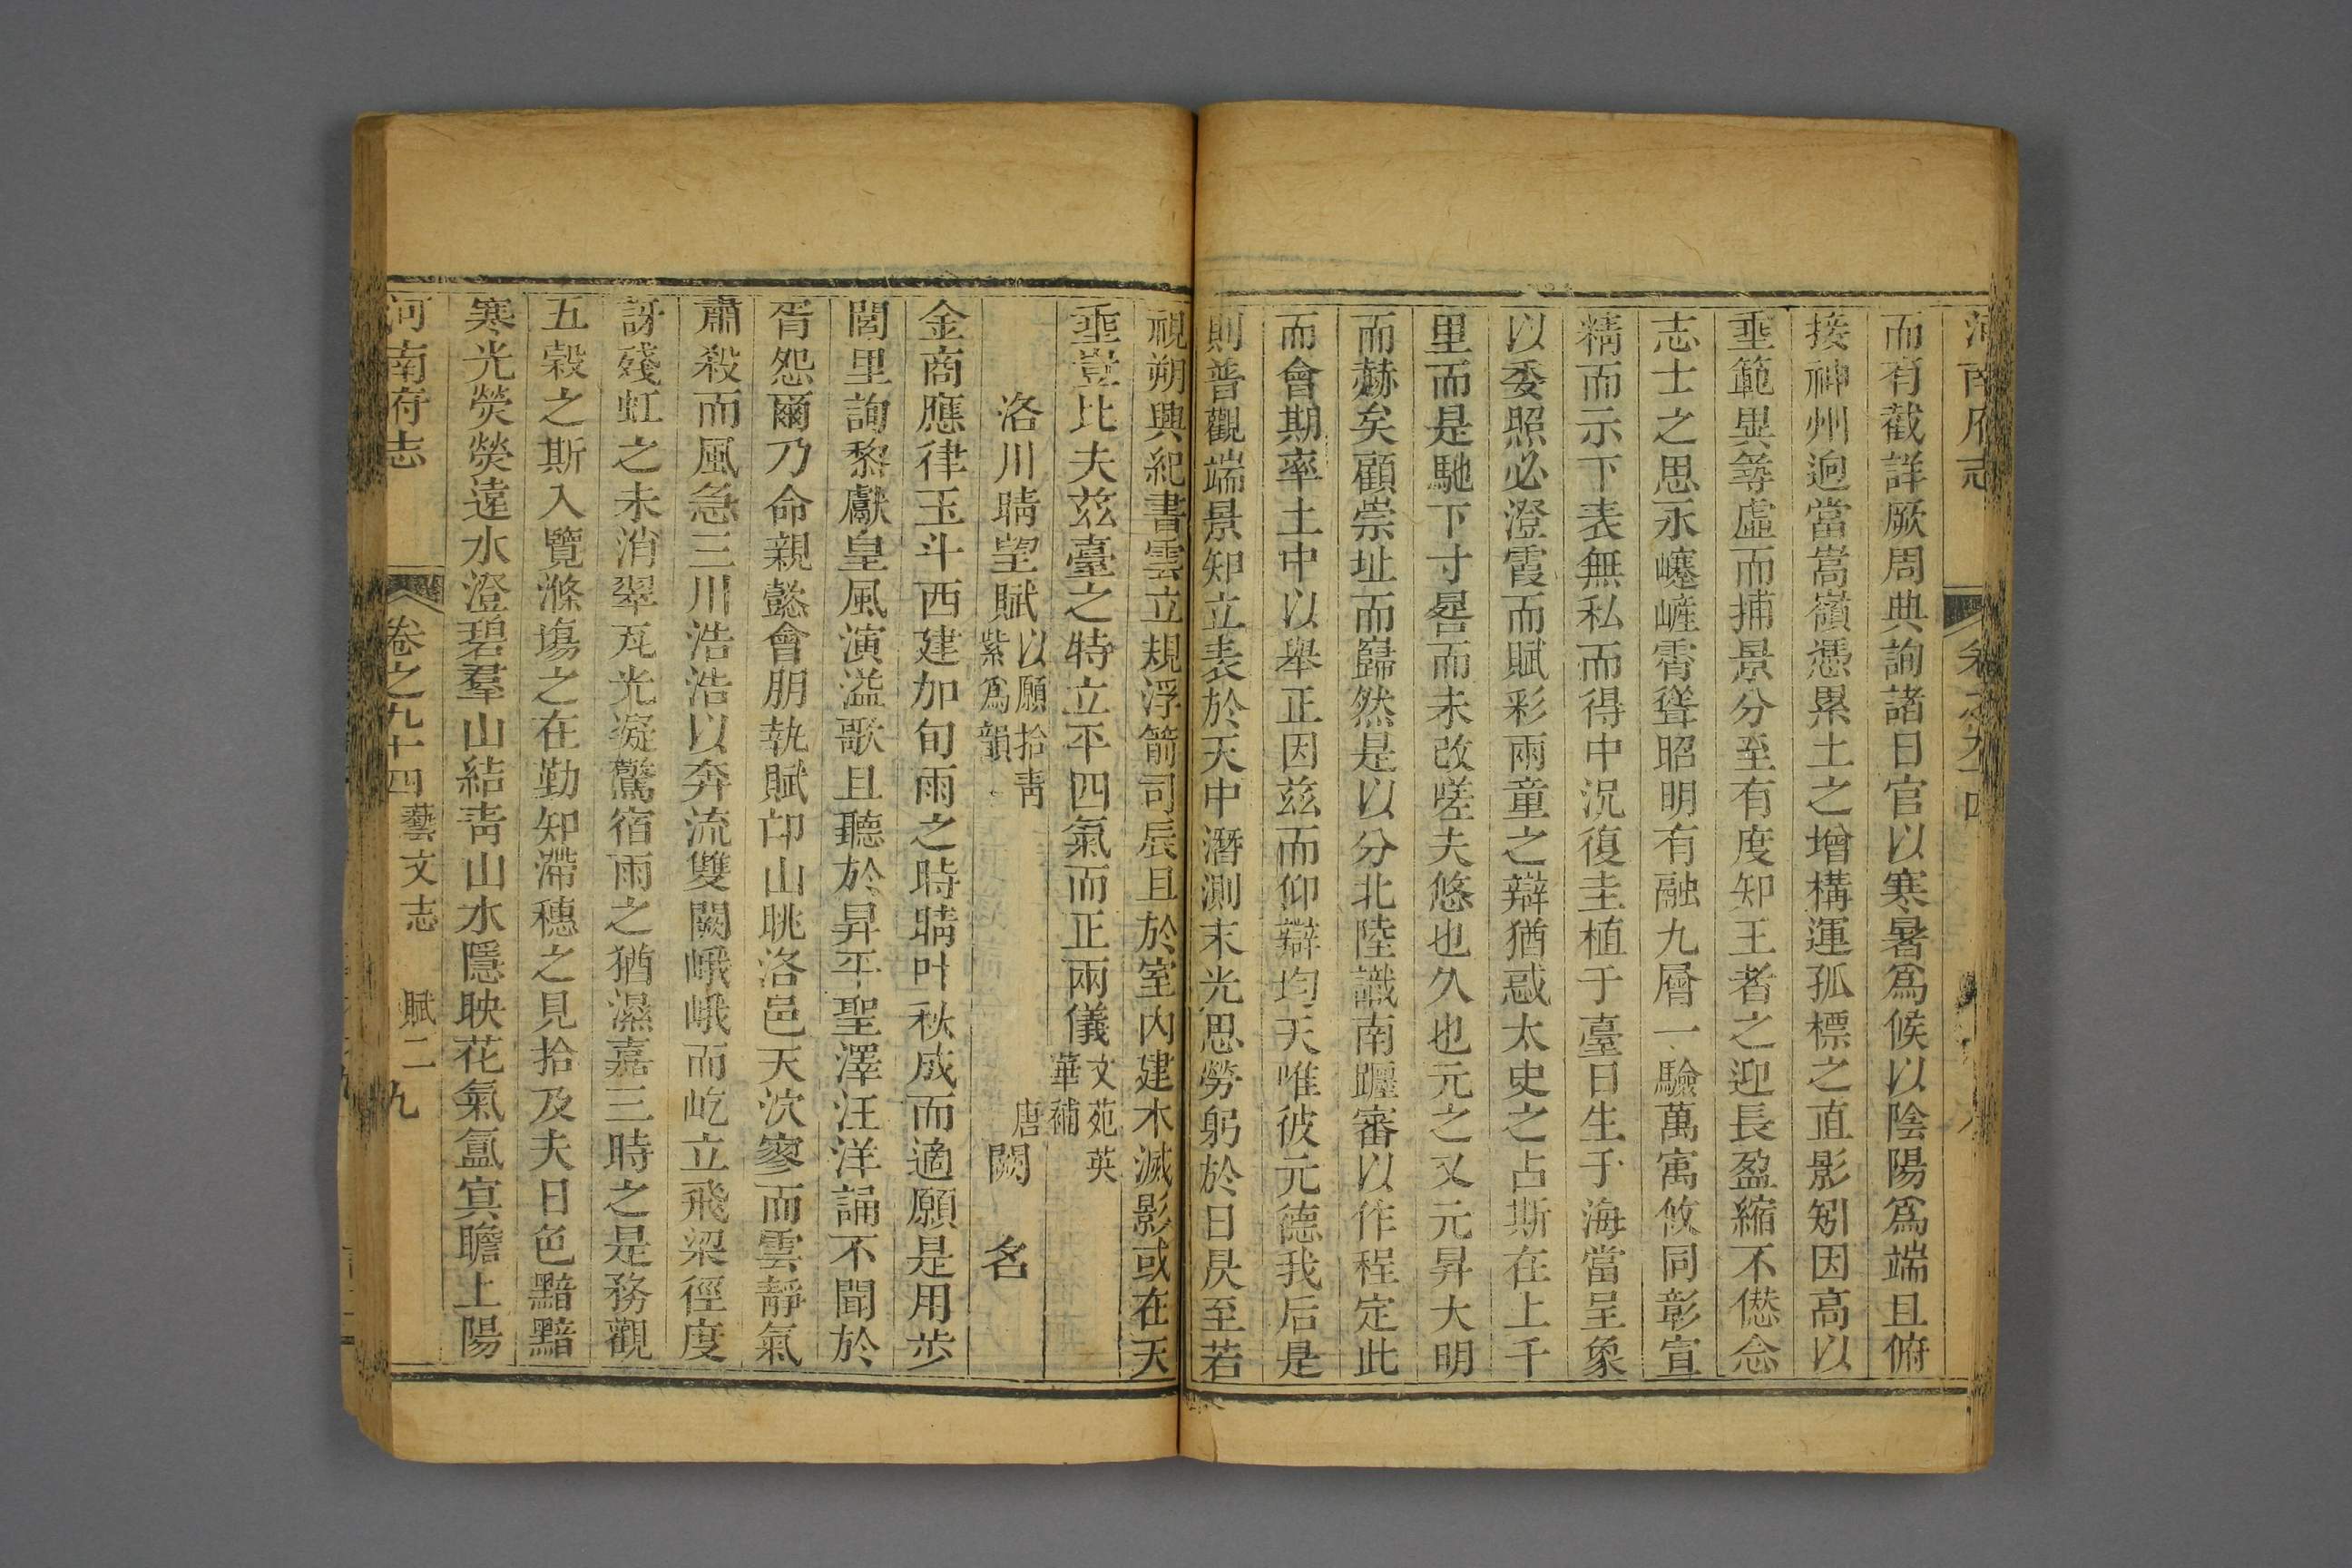 河南府志 卷之九十四
而有截詳厥周典詢諸日官以寒暑爲候以陰陽爲端且俯
接神州逈當嵩嶺憑累土之增構運孤標之直影矧因高以
垂範異等虛而捕景分至有度知王者之迎長盈縮不愆念
志士之思永巙嵼霄聳昭明有融九層一驗萬寓攸同彰宣
精而示下表無私而得中況復圭植于臺日生于海當呈象
以委照必澄霞而賦彩兩童之辯猶惑太史之占斯在上千
里而是馳下寸晷而未改嗟夫悠也久也元之又元昇大明
而赫矣顧崇址而巋然是以分北陸識南躔審以作程定此
而會期率土中以舉正因兹而仰辯均天唯彼元德我后是
則普觀端景知立表於天中潛測末光思勞躬於日昃至若
視朔興紀書雲立規浮箭司辰且於室内建木滅影或在天
垂豈比夫兹臺之特立平四氣而正兩儀文苑英華補
洛川晴望賦以願拾靑紫爲韻 唐闕名
金商應律玉斗西建加旬雨之時晴叶秋成而適願是用步
閭里詢黎獻皇風演溢歌且聽於昇平聖澤汪洋誦不聞於
胥怨爾乃命親懿會朋執賦邙山眺洛邑天泬寥而雲靜氣
肅殺而風急三川浩浩以奔流雙闕峨峨而屹立飛梁徑度
訝殘虹之未消翠瓦光凝驚宿雨之猶濕嘉三時之是務觀
五穀之斯入覽滌塲之在勤知滯穗之見拾及夫日色黯黯
寒光熒熒遠水澄碧羣山結靑山水隱映花氣氳寘瞻上陽
河南府志 卷之九十四藝文志 賦二 九